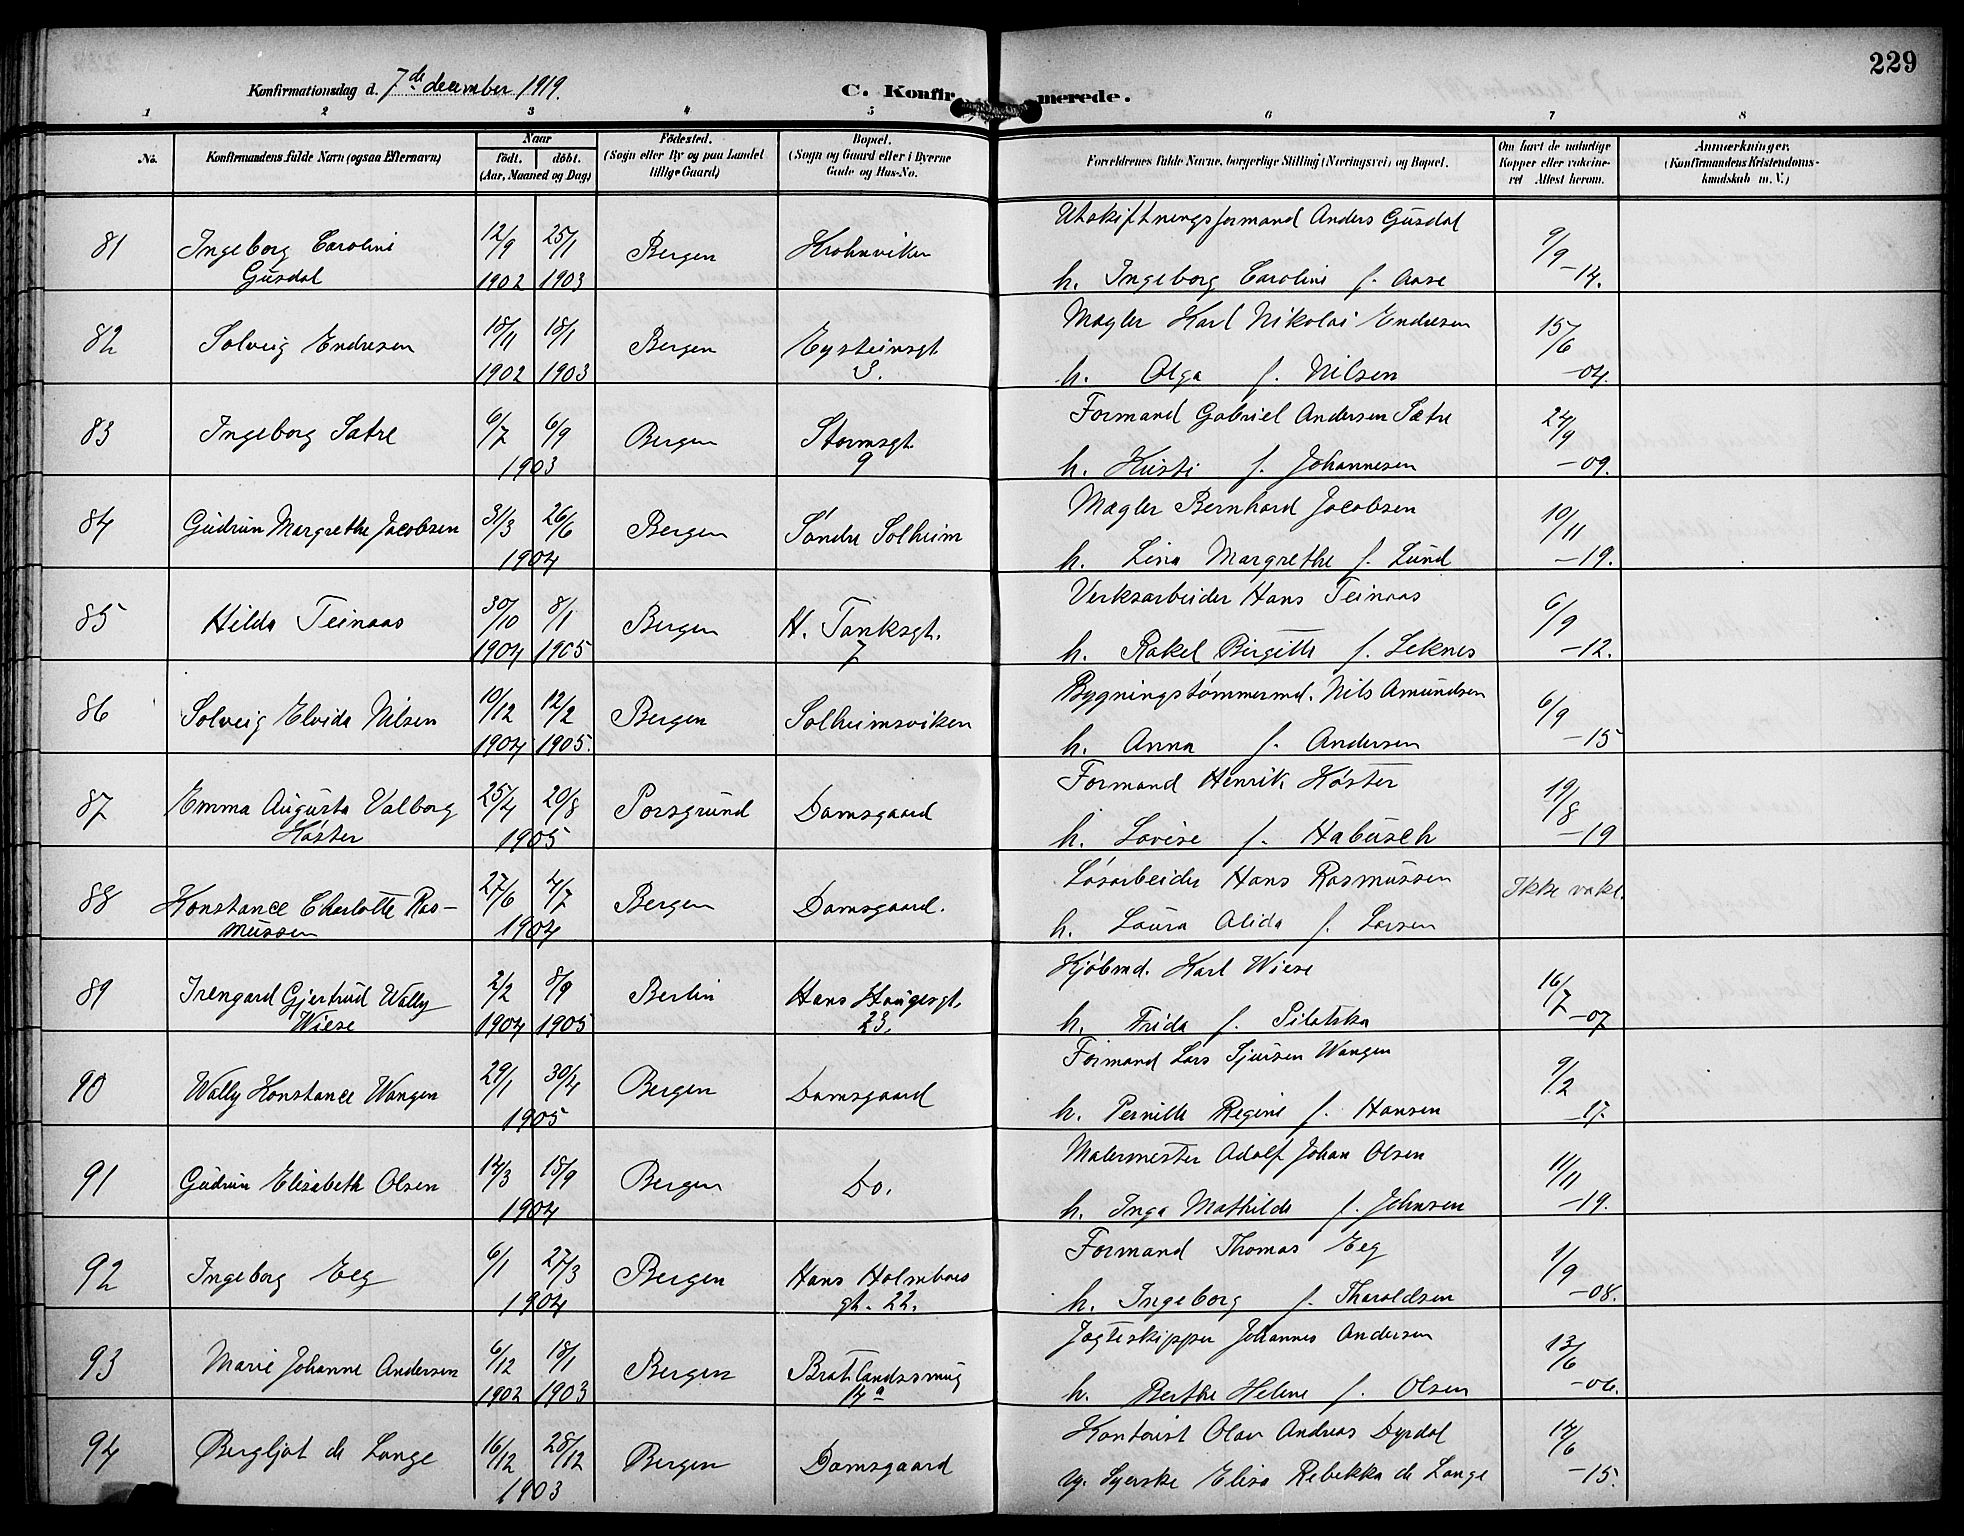 229
Konfirmationsdag d. 7de december 1919.
C. Konfirmerede.
1 2 3 4 5 6 7 8
No. Konfirmandens fulde Navn (ogsaa Efternavn) Naar født. døbt. (Aar, Maaned og Dag) Födested. (Sogn eller By og paa Landet tillige Gaard) Bopæl. (Sogn og Gaard eller i Byerne Gade og Hus-No. Forældrenes fulde Navne, borgerlige Stilling (Næringsvei) og Bopæl. Om havt de naturlige Kopper eller vakcineret Attest herom. Anmærkninger. (Konfirmandens Kristendomskundskab m. V.)
81 Ingeborg Caroline Gusdal 12/9 1902 25/1 1903 Bergen Krohnviken Utskiftningsformand Anders Gusdal
h. Ingeborg Caroline f. Aase 9/9 -14.
82 Solveig Endresen 18/11 1902 18/1 1903 Bergen Eysteinsgt 3. Mægler Karl Nikolai Endresen
h. Olga f. Nilsen 15/6 -04.
83 Ingeborg Sætre 6/7 6/9 1903 Bergen Stormsgt. 9 Formand Gabriel Andersen Sætre
h. Kristi f. Johannesen 24/9 -09.
84 Gudrun Margrethe Jacobsen 31/3 26/6 1904 Bergen Søndre Solheim Mægler Bernhard Jacobsen
h. Lina Margrethe f. Lund 10/11 -19.
85 Hilda Teinaas 30/10 1904 8/1 1905 Bergen H. Tanksgt. 7 Verksarbeider Hans Teinaas
h. Rakel Birgitte f. Leknes 6/9 -12.
86 Solveig Elvida Nilsen 10/12 1904 12/2 1905. Bergen Solheimsviken Bygningstømmermd. Nils Amundsen
h. Anna f. Andersen 6/9 -15
87 Emma Augusta Valborg Høster 25/4 20/8 1905 Porsgrund Damsgaard Formand Henrik Høster
h. Lovise f. Habusch 19/8 -19
88 Konstance Charlotte Rasmussen 27/6 4/7 1904 Bergen Damsgaard. Løsarbeider Hans Rasmussen
h. Laura Alida f. Larsen Ikke vakc.
89 Irengard Gjertrud Wally Wiese 2/2 1904 8/9 1905 Berlin Hans Haugesgt. 23. Kjøbmd. Karl Wiese
h. Frida f. Pilatska 16/7 -07
90 Wally Konstance Wangen 29/1 30/4 1905 Bergen Damsgaard Formand Lars Sjursen Wangen
h. Pernille Regine f. Hansen 9/2 -17.
91 Gudrun Elisabeth Olsen 14/3 18/9 1904 Bergen Do. Malermester Adolf Johan Olsen
h. Inga Mathilde f. Johnsen 11/11 -19.
92 Ingeborg Eeg 6/1 27/3 1904 Bergen Hans Holmboes gt. 22. Formand Thomas Eeg
h. Ingeborg f. Tharoldsen 1/9 -08.
93 Marie Johanne Andersen 6/12 1902 18/1 1903 Bergen Bratlandssmug 14a Jægteskipper Johannes Andersen
h. Berthe Helene f. Olsen 13/6 -06.
94 Bergljot de Lange 16/12 28/12 1903 Bergen Damsgaard Kontorist Olav Andreas Dyrdal
ug. Syerske Elisa Rebekka de Lange 14/6 -15.